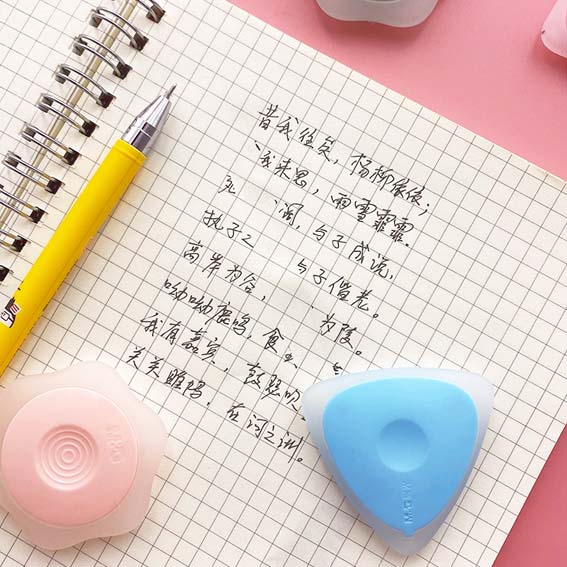 昔我往矣，杨柳依依；
我来思，雨雪霏霏.
死 阔，与子成说，
执子之 与子偕老。
高岸为谷， 为陵。
呦呦鹿鸣，食
我有嘉宾，鼓瑟吹
关关雎鸠，在河之洲。
M&G